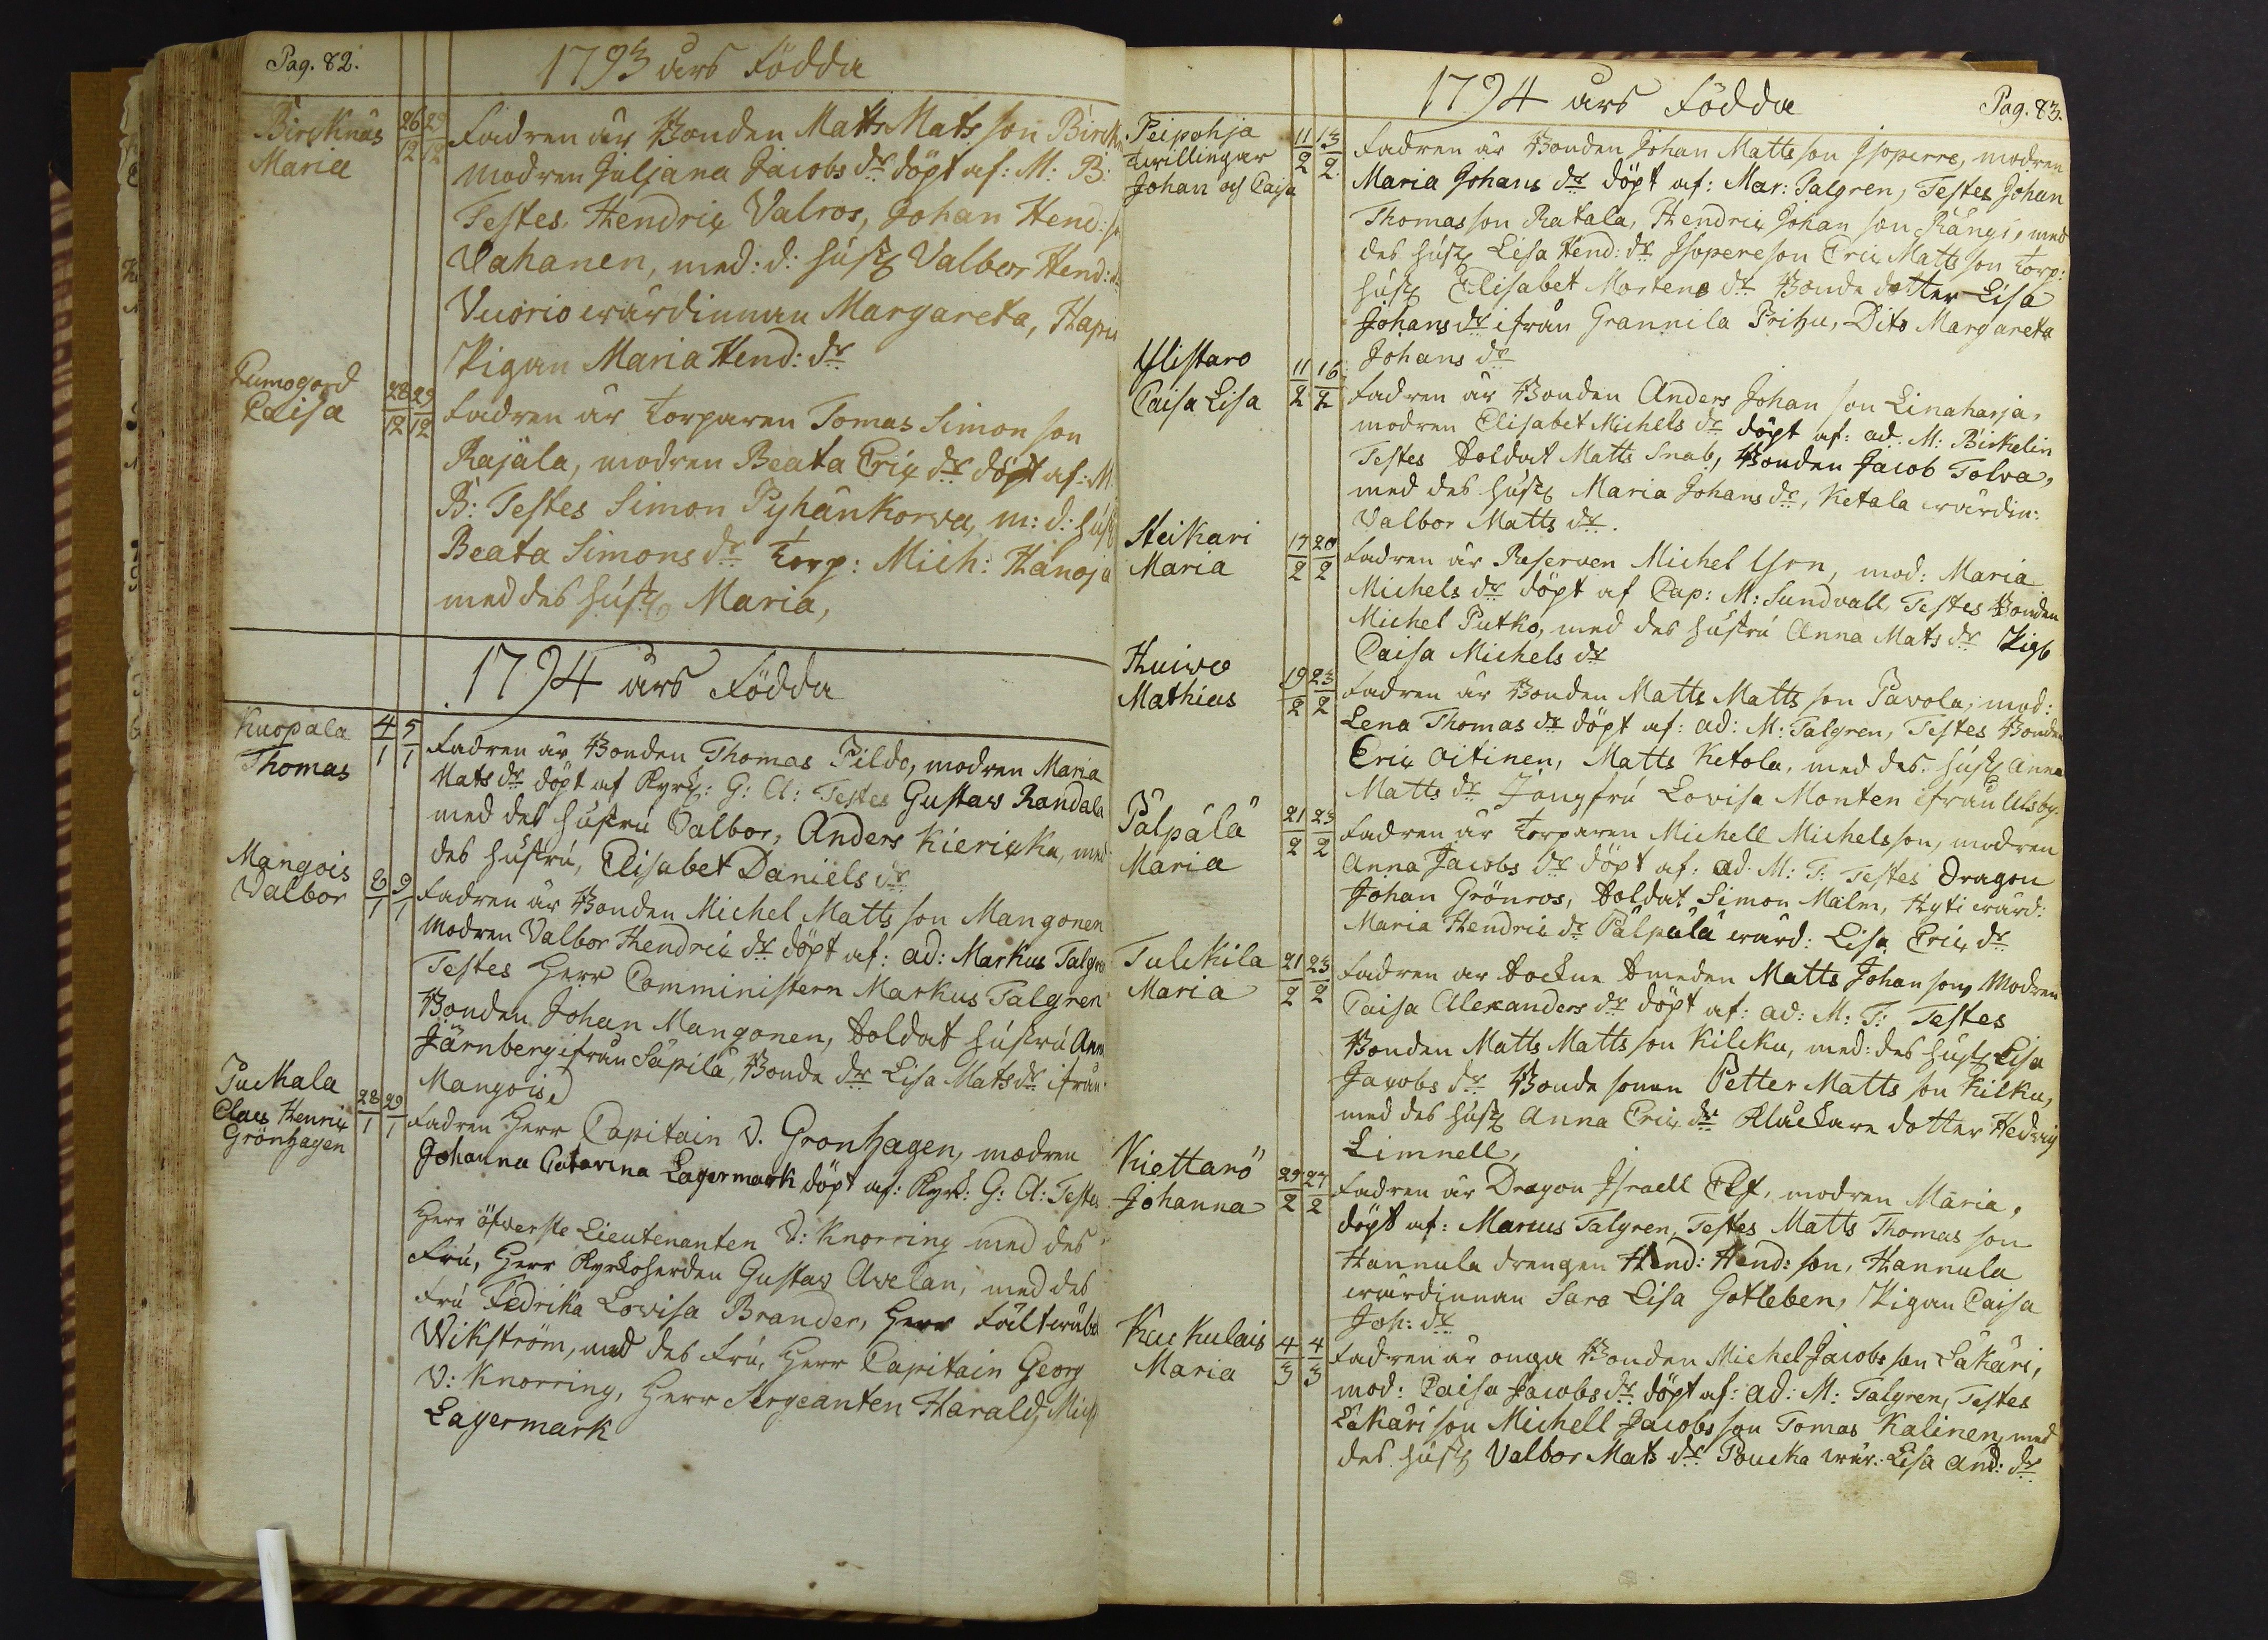 Pag. 82.
1793 års Födda
Bircknäs
Maria
26/12 29/12
Fadren är Bonden Matts Mats son Birckn
modren Juliana Jacobs dr döpt af: M: B:
Testes Hendric Valros, Johan Hend: s
Vahanen, med: d: hust Valbor Hend: d
Vuorio wärdinnan Margareta, Hapu
Pigan Maria Hend: dr
Kumogård
Caisa
28/12 29/12
Fadren är Torparen Tomas Simon son
Rajala, modren Beata Eric dr döpt af: M.
B: Testes Simon Pyhänkorva, m: d: hust
Beata Simons dr Torp: Mich: Hanoja
med des hust Maria,
1794 års Födda
Kuopala
Thomas
4/1 5/1
Fadren är Bonden Thomas Pildo, modren Maria
Mats dr döpt af Kyrk: G: A: Testes Gustaw Randala
med des hustru Valbor, Anders Kiericka, med
des hustru, Elisabet Daniels dr
Mangois
Valbor
8/1 9/1
Fadren är Bonden Michel Matts son Mangonen
modren Valbor Hendric dr döpt af: ad: Markus Talgre
Testes Herr Comministern Markus Talgren
Bonden Johan Mangonen, Soldat hustru Anna
Järnberg ifrån Säpilä, Bonde dr Lisa Mats dr ifrån
Mangois
Puckala
Claes Henric
Grönhagen
28/1 29/1
Fadren Herr Capitain V. Gronhagen, modren
Johanna Catarina Lagermark döpt af: Kyrk: G: A: Testes
Herr öfwerste Lieutenanten V: Knorring med des
Fru, Herr Kyrkoherden Gustav Avelan, med des
Fru Fedrika Lovisa Brander, Herr Fältwäbel
Wikström, med des Fru, Herr Capitain Georg
V: Knorring, Herr Sergeanten Harald, Mich
Lagermark
1794 års Födda
Pag. 83.
Peipohja
twillingar
Johan och Caisa
11/2 13/2
Fadren är Bonden Johan Matts son Isoperre, modren
Maria Johans dr döpt af: Mar: Talgren, Testes Johan
Thomas son Ratala, Hendric Johan son Kängi, med
des hust Lisa Hend: dr Isopere son Eric Matts son Torp:
hust Elisabet Mortens dr Bonde dotter Lisa
Johans dr ifrån Grannila Prihu, Dito Margareta
Johans dr
Ylistaro
Caisa Lisa
11/2 16/2
Fadren är Bonden Anders Johan son Linaharja,
modren Elisabet Michels dr döpt af: ad. M: Birkelin
Testes Soldat Matts Snab, Bonden Jacob Tolva,
med des hust Maria Johans dr, Ketala wärdin:
Valbor Matts dr.
Steikari
Maria
17/2 20/2
Fadren är Reserven Michel Urn, mod: Maria
Michels dr döpt af Cap: M: Sundvall, Testes Bonden
Michel Putko, med des hustru Anna Mats dr Pig
Caisa Michels dr
Huiwo
Mathias
19/2 23/2
Fadren är Bonden Matts Matts son Pavola, mod:
Lena Thomas dr döpt af: ad: M: Talgren, Testes Bonden
Eric Oitinen, Matts Ketola, med des hust Anna
Matts dr Jungfru Lovisa Monten ifrån Ulsby.
Pälpälä
Maria
21/2 23/2
Fadren är Torparen Michell Michels son, modren
Anna Jacobs dr döpt af: ad. M: T: Testes Dragon
Johan Grönros, Soldat Simon Malm, Hyti wärd:
Maria Hendric dr Pälpälä wärd: Lisa Eric dr
Tulkkila
Maria
21/2 23/2
Fadren är Sockne Smeden Matts Johan son, Modren
Caisa Alexanders dr döpt af: ad: M: T: Testes
Bonden Matts Matts son Kilcku, med: des hust Lisa
Jacobs dr Bonde sonen Petter Matts son Kilku,
med des hust Anna Eric dr Kluckare dotter Hedvig
Limnell,
Kiettarö
Johanna
25/2 27/2
Fadren är Dragon Israell Elf, modren Maria,
döpt af: Marcus Talgren, Testes Matts Thomas son
Hannula drengen Hend: Hend: son, Hannula
wärdinnan Sara Lisa Gotleben, Pigan Caisa
Joh: dr
Kuckulais
Maria
4/3 4/3
Fadren är unga Bonden Michel Jacobs son Säkäri,
mod: Caisa Jacobs dr döpt af: ad: M: Talgren, Testes
Säkäri son Michell Jacobs son Tomas Kalinen, med
des hust Valbor Mats dr Poucka wär: Lisa And: dr